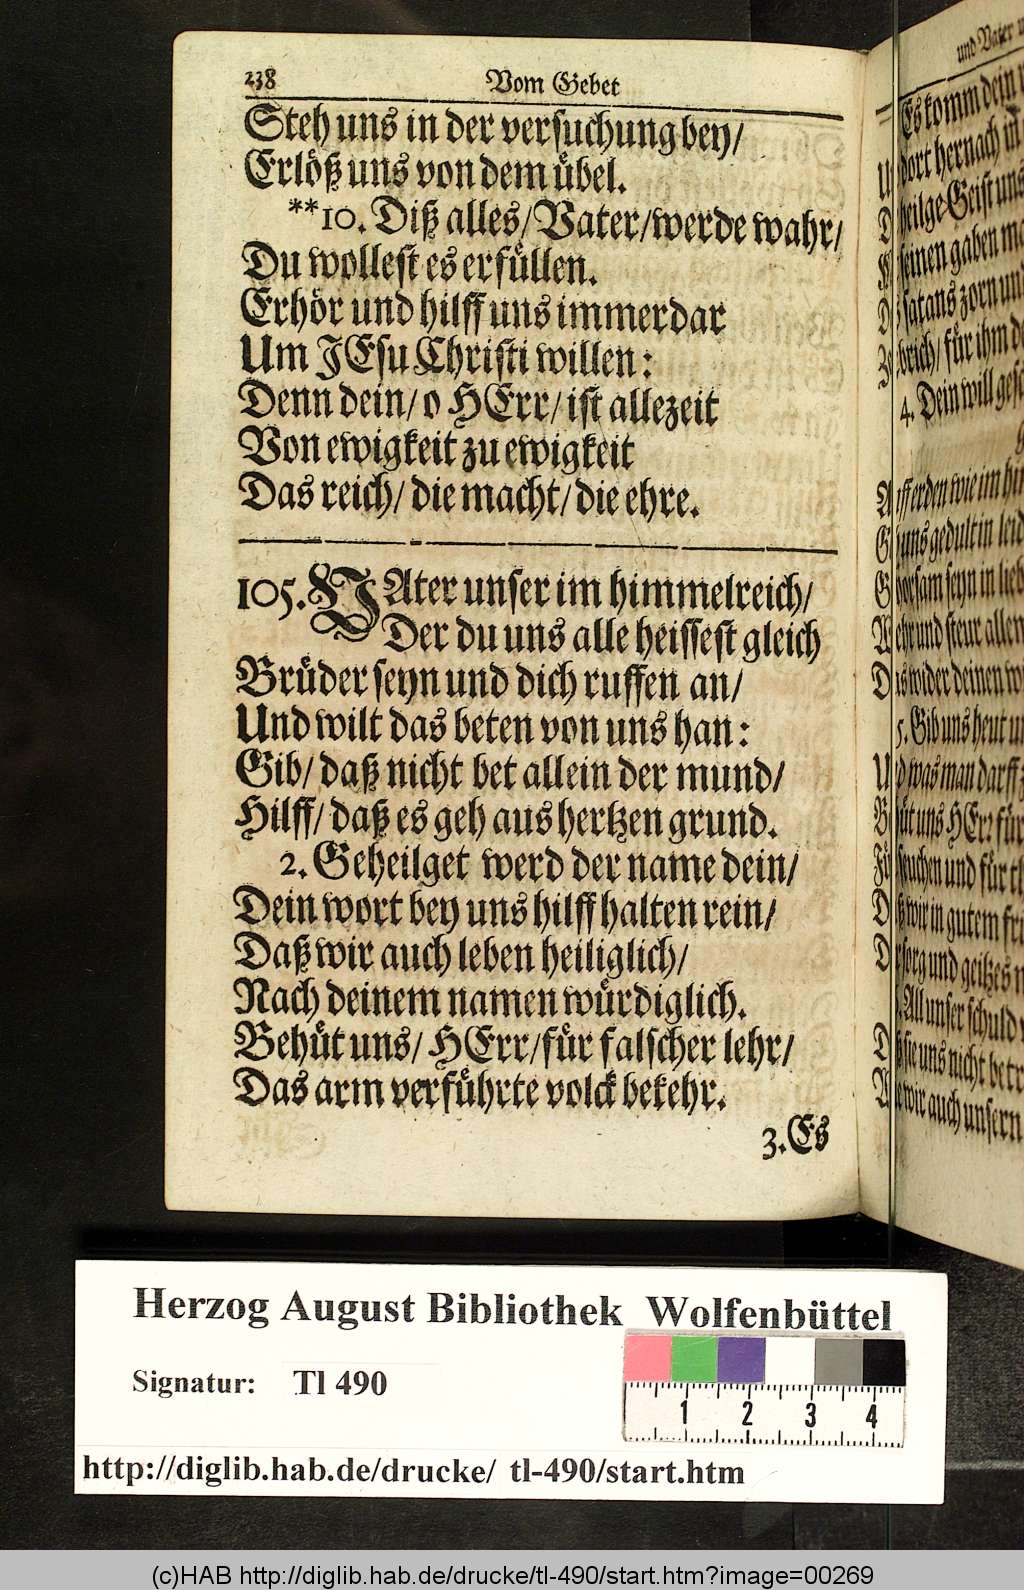 238 Vom Gebet
Steh uns in der versuchung bey/
Erlöß uns von dem übel.
**10. Diß alles/ Vater/ werde wahr/
Du wollest es erfüllen.
Erhör und hilff uns immerdar
Um JEsu Christi willen:
Denn dein/ o HErr/ ist allezeit
Von ewigkeit zu ewigkeit
Das reich/ die macht/ die ehre.
105. VAter unser im himmelreich/
Der du uns alle heissest gleich
Brüder seyn und dich ruffen an/
Und wilt das beten von uns han:
Gib/ daß nicht bet allein der mund/
Hilff/ daß es geh aus hertzen grund.
2. Geheilget werd der name dein/
Dein wort bey uns hilff halten rein/
Daß wir auch leben heiliglich/
Nach deinem namen würdiglich.
Behüt uns/ HErr/ für falscher lehr/
Das arm verführte volck bekehr.
3. Es
und Vater
Es komm dein
dort hernach in
heilge Geist uns
seinen gaben
satans zorn
für ihm
4. Dein will
erden wie im
uns gedult in
seyn in
und steur allen
wider deinen
5. Gib uns heut
was man darff
uns HErr für
seuchen und für
wir in gutem
und geitzes
All unser schuld
sie uns nicht
wir auch unsern
Herzog August Bibliothek Wolfenbüttel
Signatur: Tl 490
1 2 3 4
http://diglib.hab.de/drucke/ tl-490/start.htm
(c)HAB http://diglib.hab.de/drucke/tl-490/start.htm?image=00269